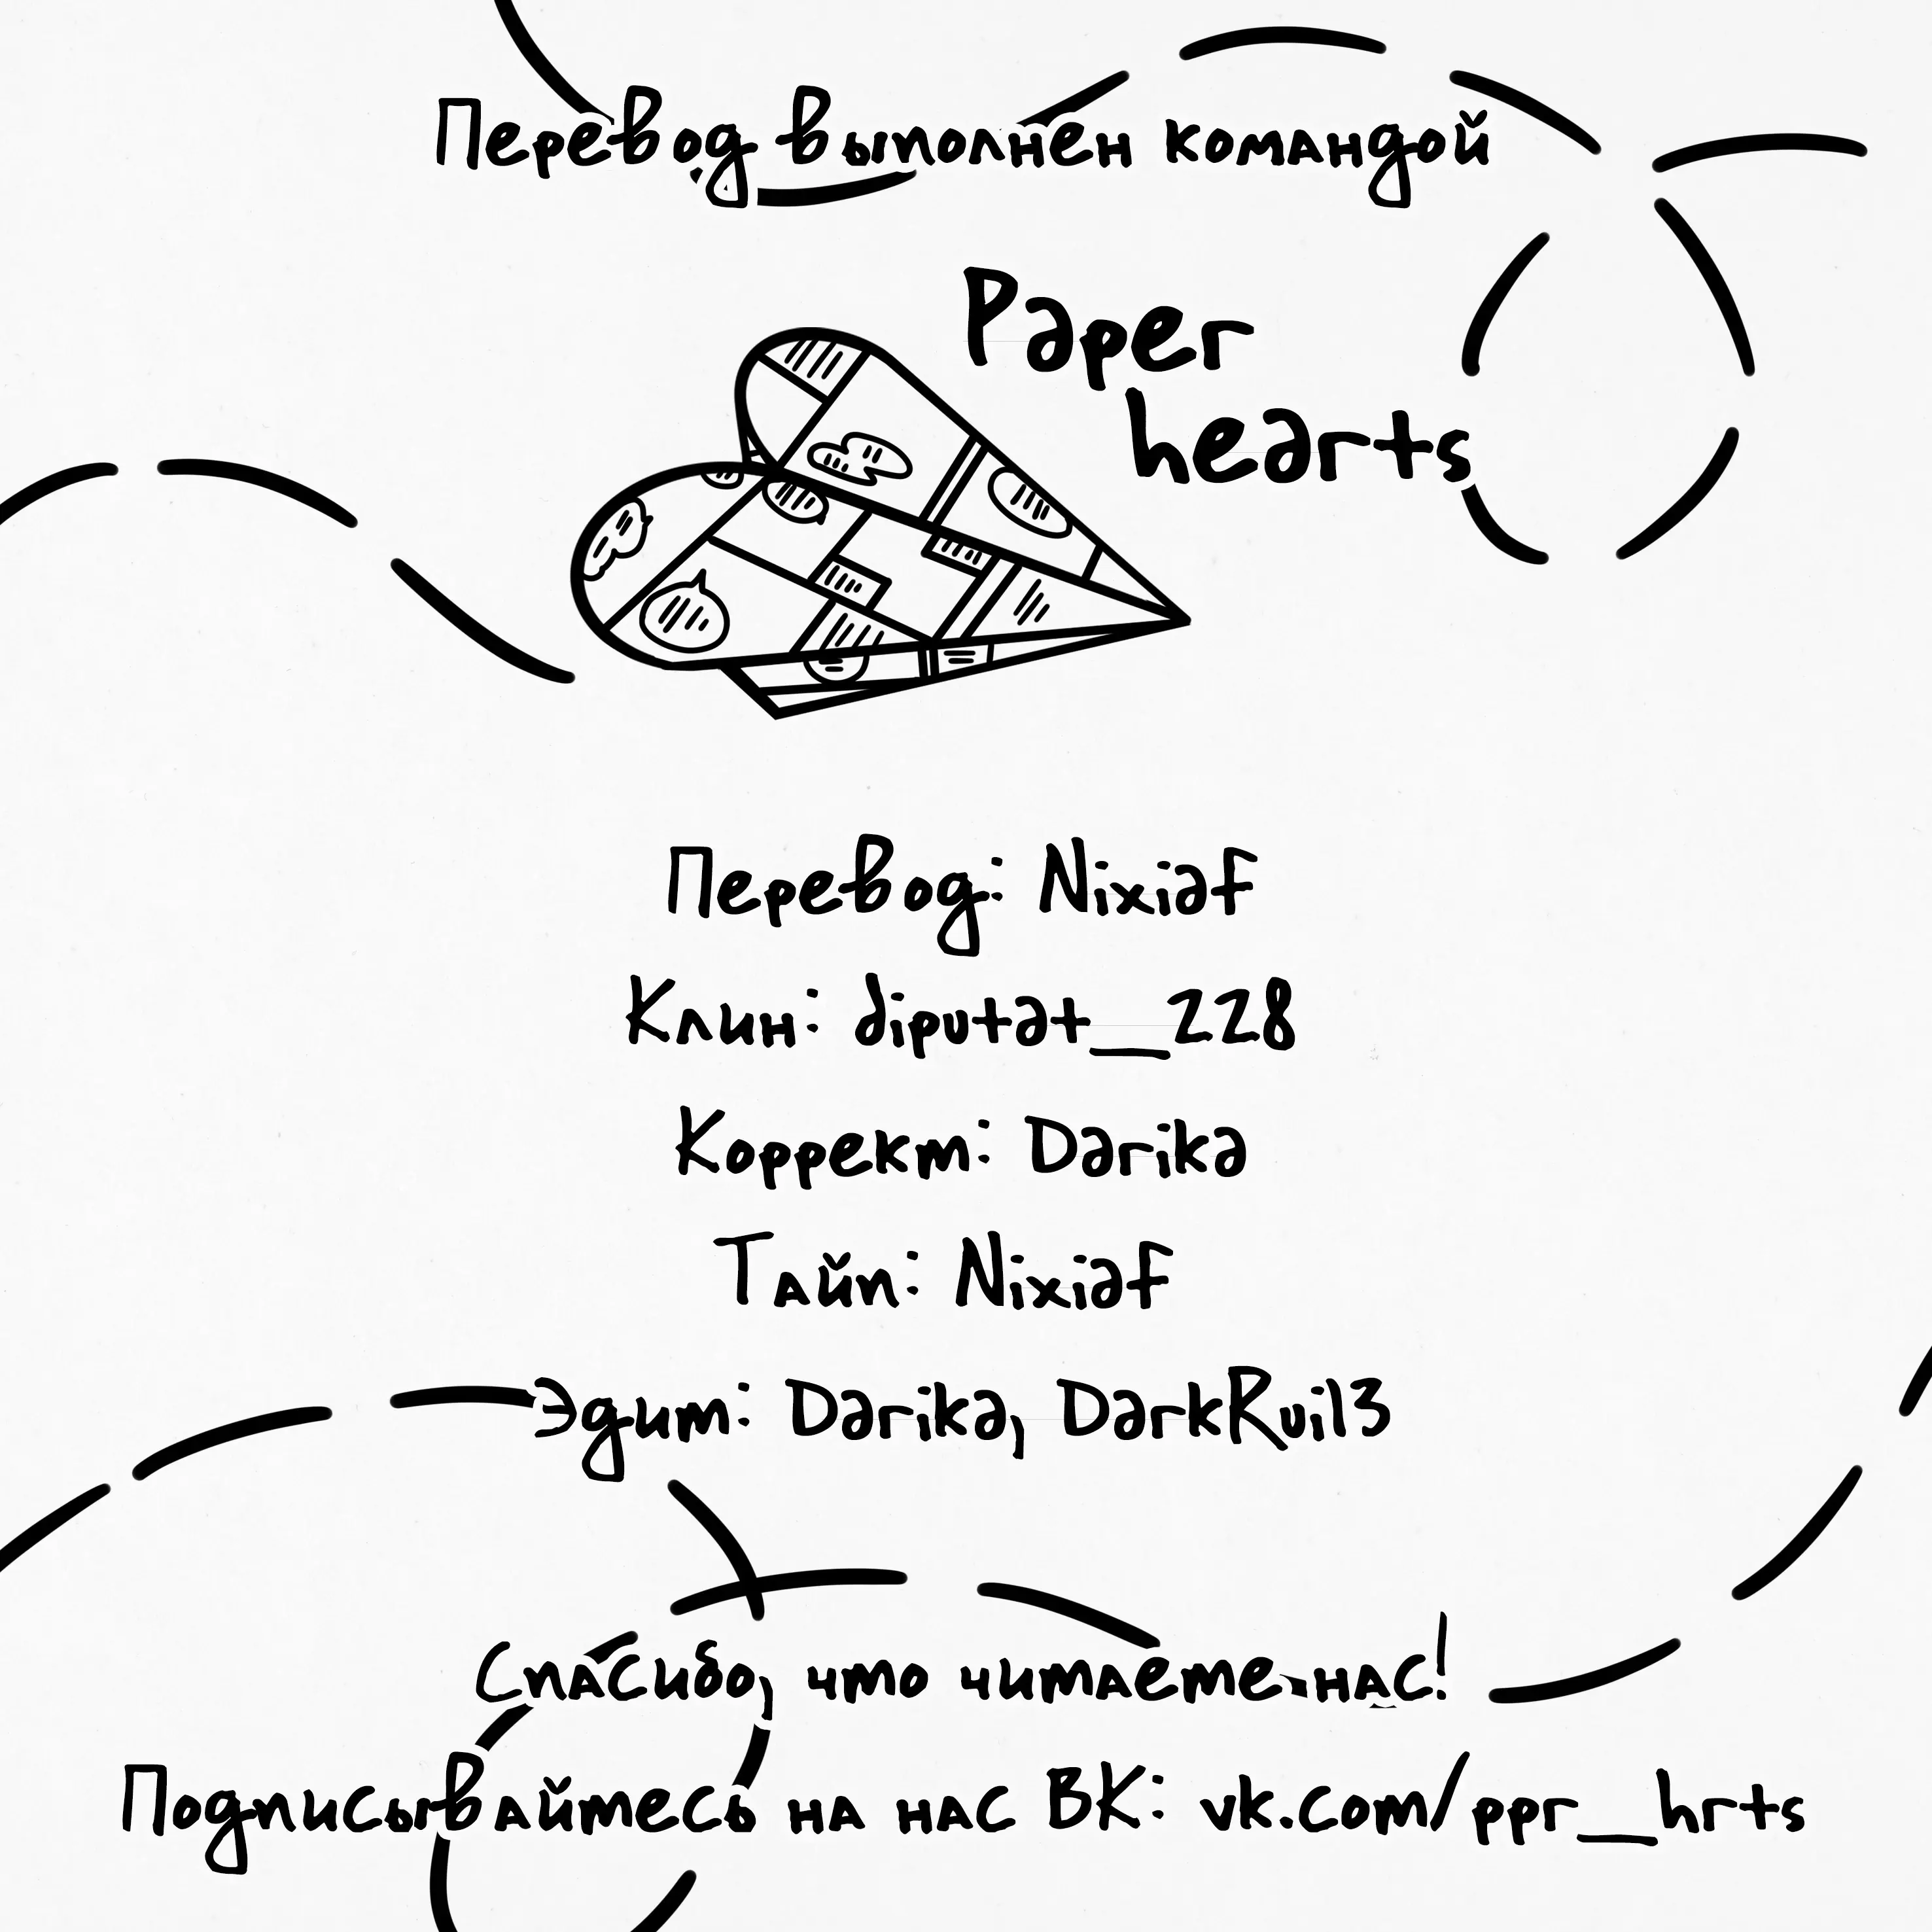 Перевод выполнен командой
Paper
hearts
Перевод: Nixiaf
Клин: diputat_228
Коррект: Darika
Тайп: Nixiaf
Эдит: Darika, DarkRuil3
Спасибо, что читаете нас!
Подписывайтесь на нас ВК: vk.com/ppr_hrts